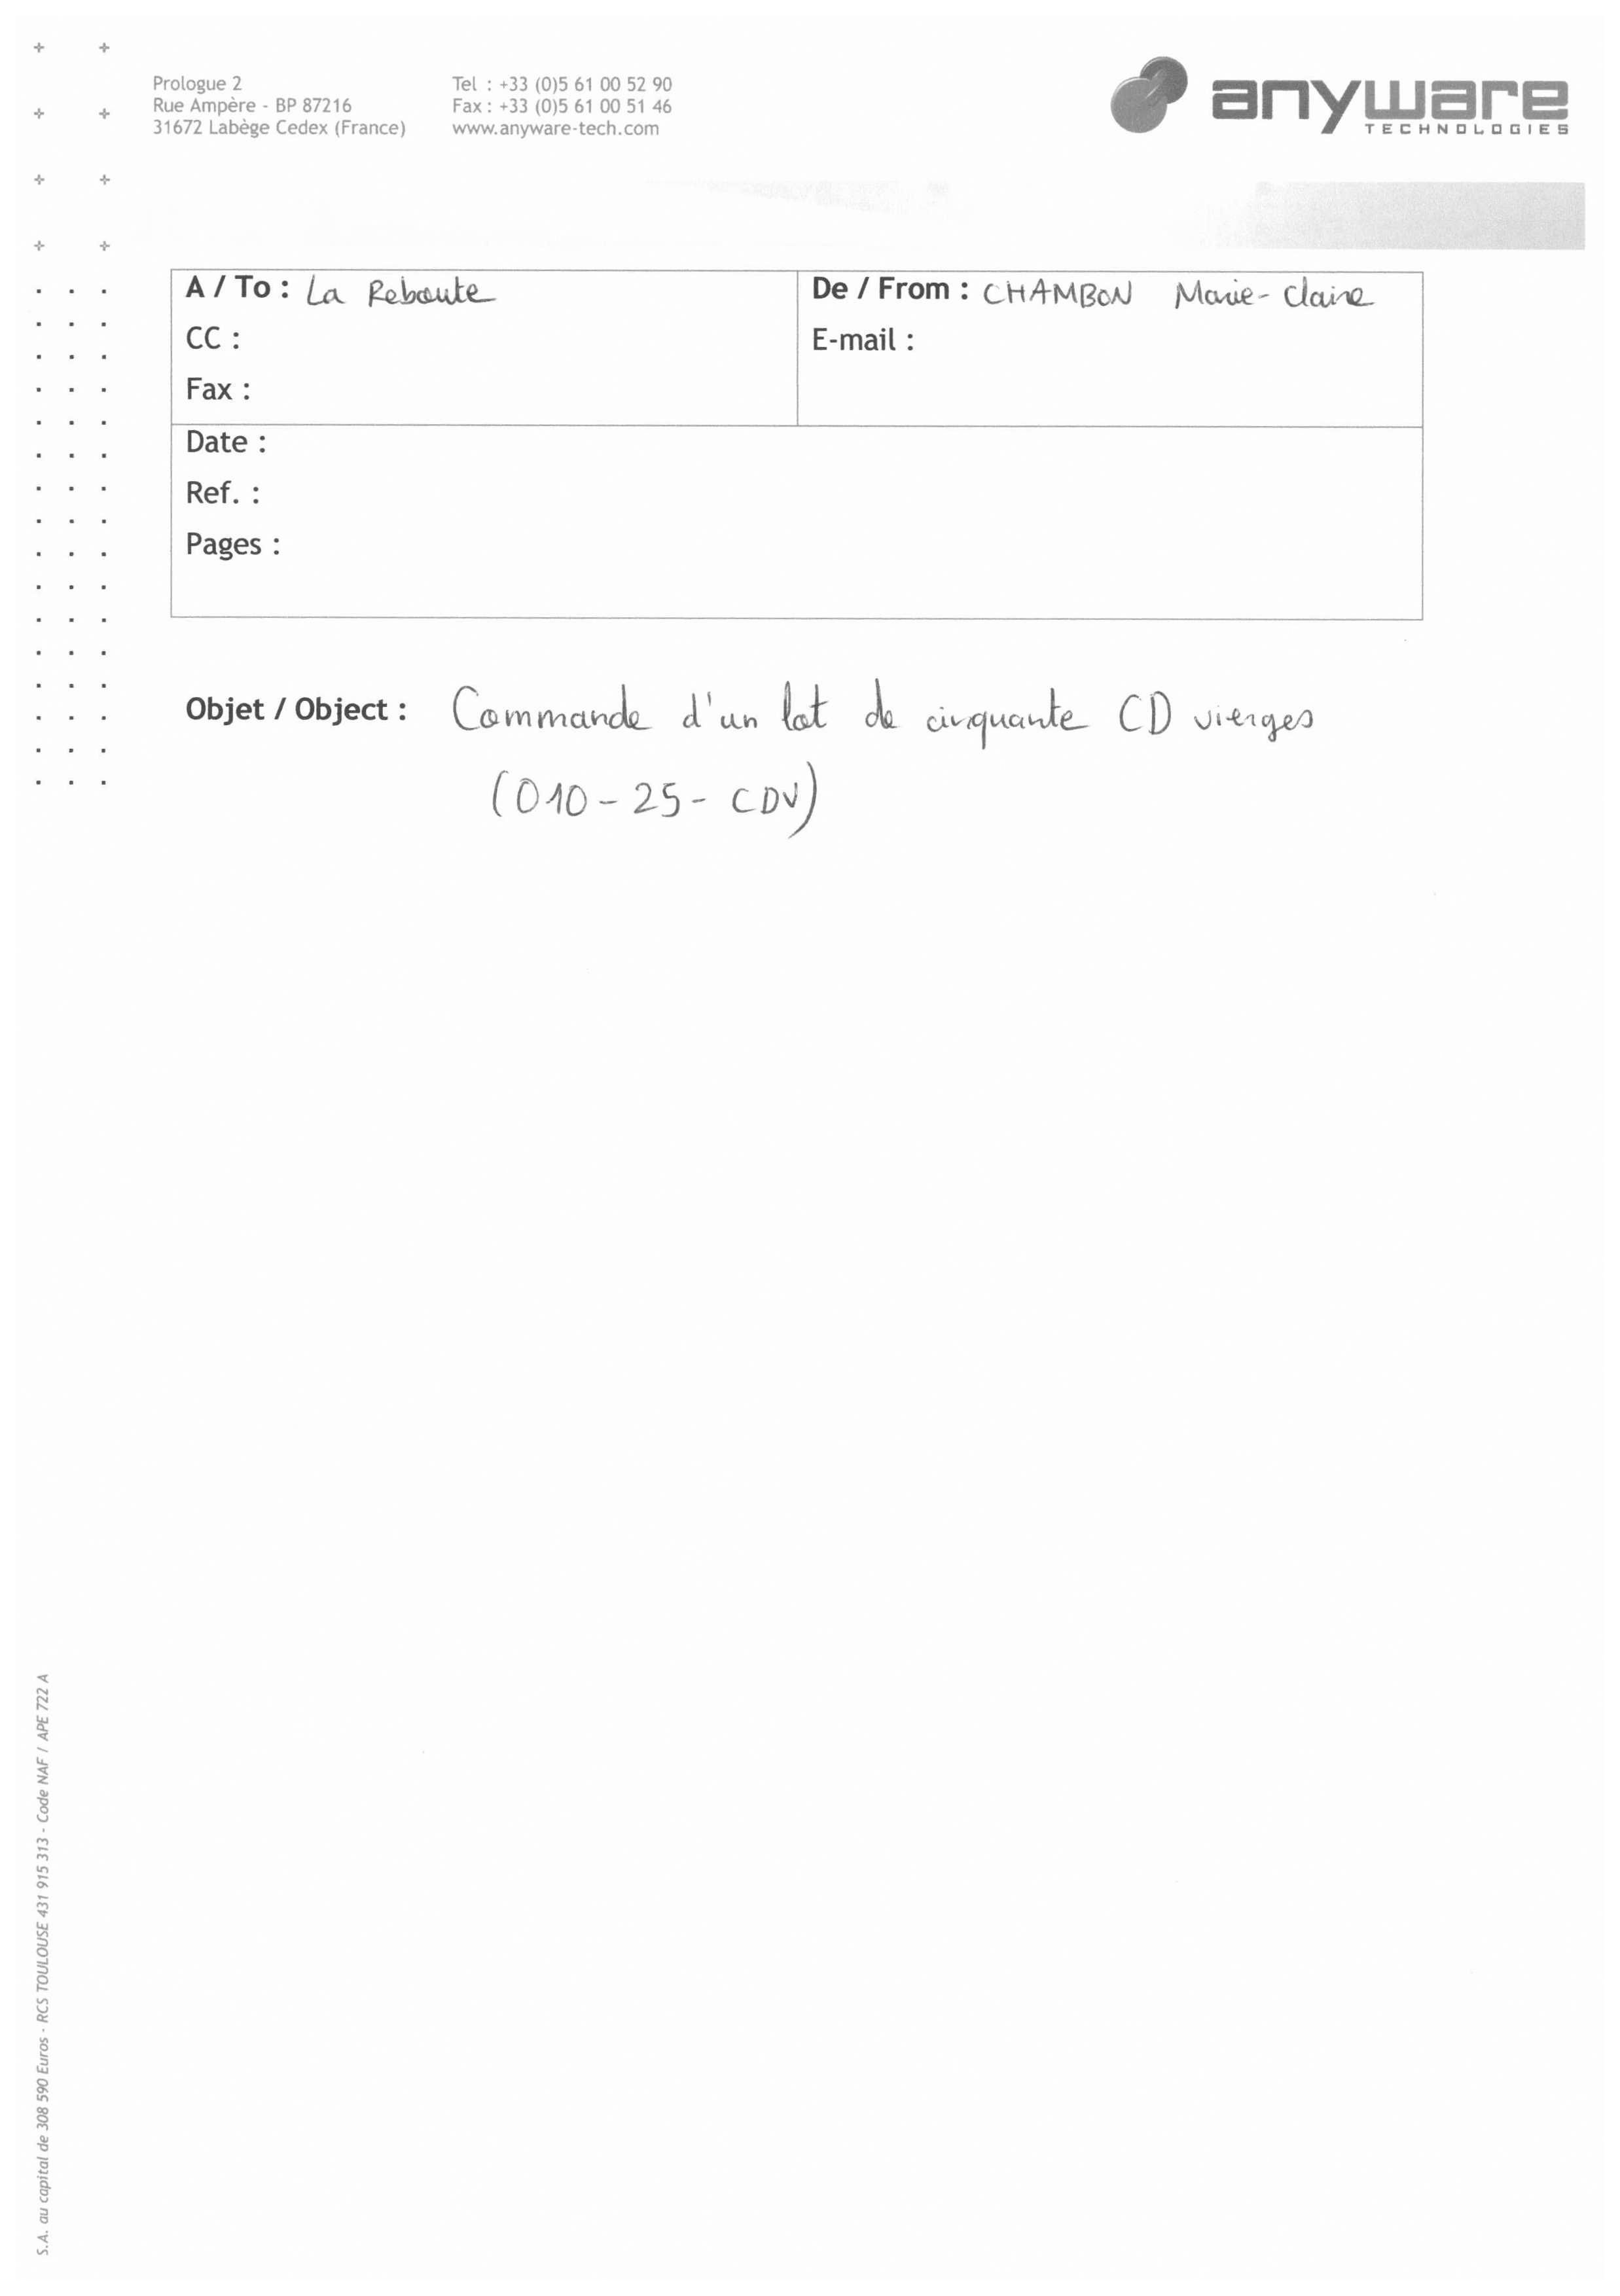 Prologue 2
Rue Ampère - BP 87216
31672 Labège Cedex (France)
Tel : +33 (0)5 61 00 52 90
Fax : +33 (0)5 61 00 51 46
www.anyware-tech.com
anyware
TECHNOLOGIES
A / To : La Reboute
CC :
Fax :
De / From : CHAMBON Marie-Claire
E-mail :
Date :
Ref. :
Pages :
Objet / Object : Commande d'un lot de cinquante CD vierges
(010-25-CDV)
S.A. au capital de 308 590 Euros - RCS TOULOUSE 431 915 313 - Code NAF / APE 722 A